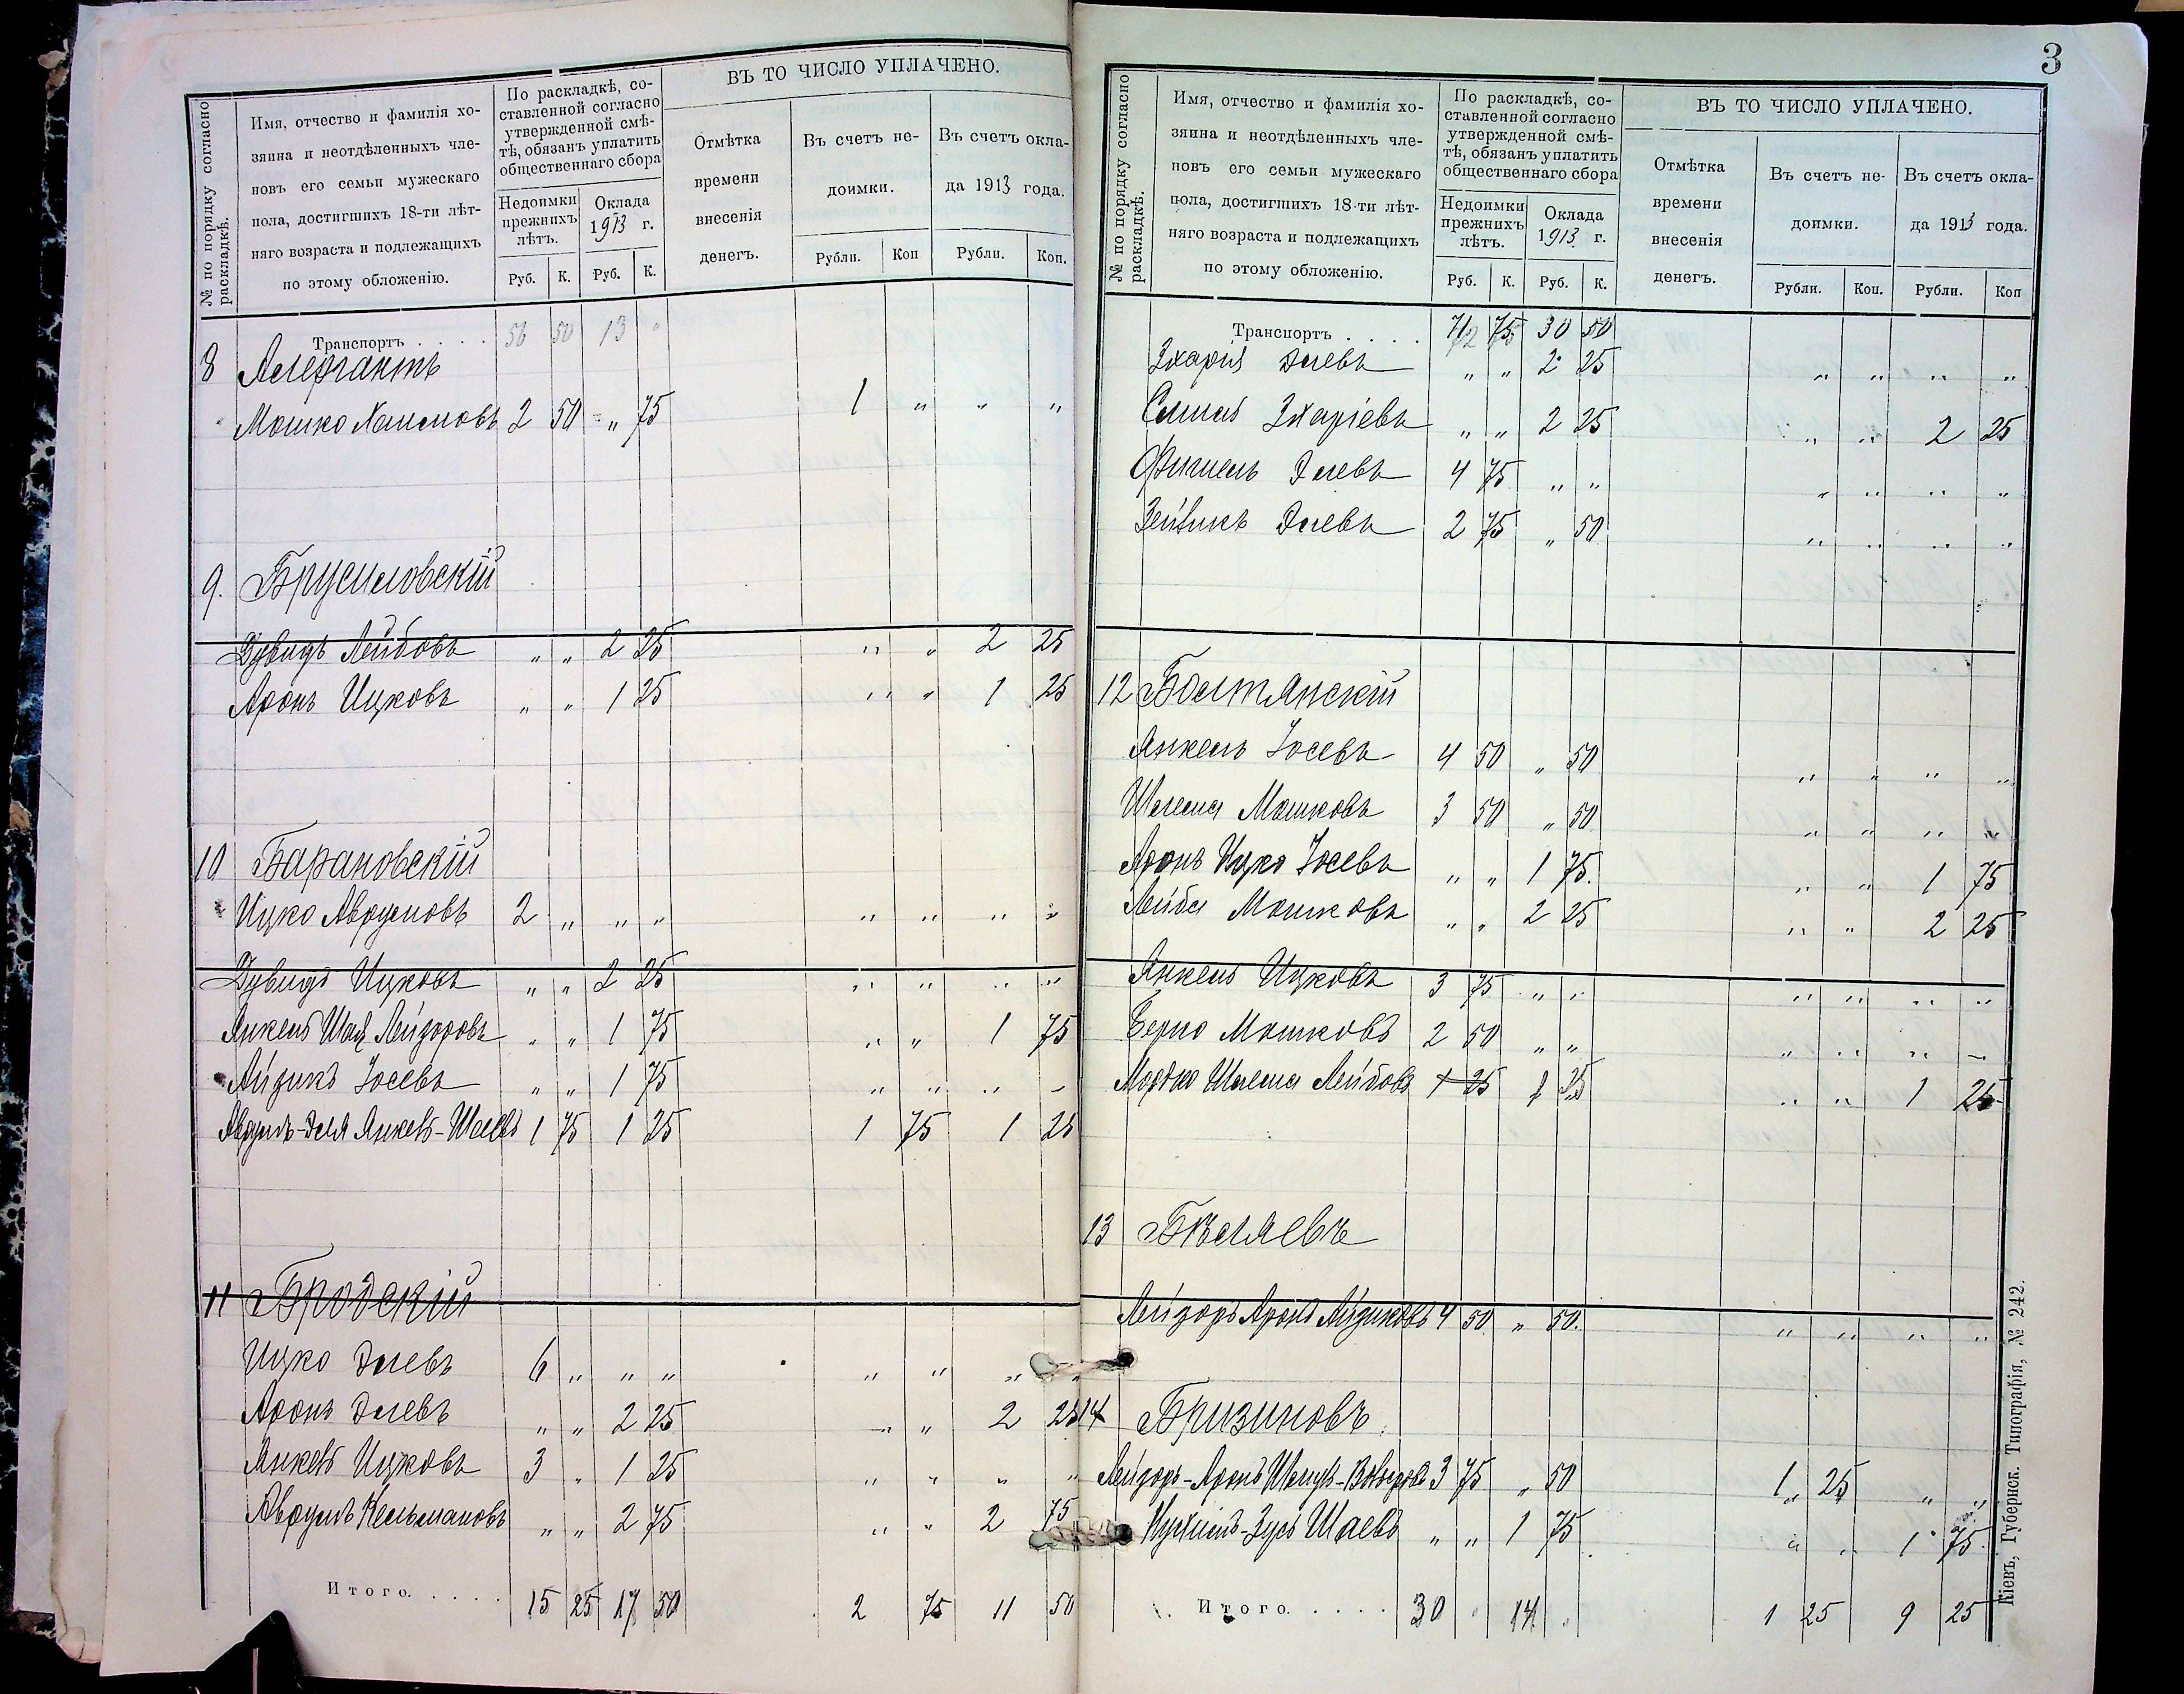 № по порядку согласно раскладкѣ.
Имя, отчество и фамилія хо-
зяина и неотдѣленныхъ чле-
новъ его семьи мужескаго
пола, достигшихъ 18-ти лѣт-
няго возраста и подлежащихъ
по этому обложенію.
По раскладкѣ, со-
ставленной согласно
утвержденной смѣ-
тѣ, обязанъ уплатить
общественнаго сбора
Недоимки
прежнихъ
лѣтъ.
Оклада
1913 г.
Руб. К. Руб. К.
ВЪ ТО ЧИСЛО УПЛАЧЕНО.
Отмѣтка
времени
внесенія
денегъ.
Въ счетъ не-
доимки.
Въ счетъ окла-
да 1913 года.
Рубли. Коп Рубли. Коп.
Транспортъ . . . . 56 50 13 "
8 Алергантъ
Мошко Хаимовъ 2 50 " 75 1 " " "
9. Брусиловскій
Дувидъ Лейбовъ " " 2 25 " " 2 25
Аронъ Ицковъ " " 1 25 " " 1 25
10 Барановскій
Ицко Аврумовъ 2 " " " " " " "
Дувидъ Ицковъ " " 2 25 " " " "
Янкель Шая Лейзоровъ " " 1 75 " " 1 75
Айзикъ Іосевъ " " 1 75 " " " "
Аврумъ-Эля Янкель-Шаевъ 1 75 1 25 1 75 1 25
11 Бродскій
Ицко Элевъ 6 " " " " " " "
Аронъ Элевъ " " 2 25 " " 2 25
Янкель Ицковъ 3 " 1 25 " " " "
Аврумъ Кельмановъ " " 2 75 " " 2 75
Итого. . . . . 15 25 17 50 2 75 11 50
3
№ по порядку согласно раскладкѣ.
Имя, отчество и фамилія хо-
зяина и неотдѣленныхъ чле-
новъ его семьи мужескаго
пола, достигшихъ 18-ти лѣт-
няго возраста и подлежащихъ
по этому обложенію.
По раскладкѣ, со-
ставленной согласно
утвержденной смѣ-
тѣ, обязанъ уплатить
общественнаго сбора
Недоимки
прежнихъ
лѣтъ.
Оклада
1913 г.
Руб. К. Руб. К.
ВЪ ТО ЧИСЛО УПЛАЧЕНО.
Отмѣтка
времени
внесенія
денегъ.
Въ счетъ не-
доимки.
Въ счетъ окла-
да 1913 года.
Рубли. Коп. Рубли. Коп
Транспортъ . . . . 75 30 50
Зхарія Элевъ " " 2 25 " " " "
Зхаріевъ " " 2 25 " " 2 25
Фишель Элевъ 4 75 " " " " " "
Зейликъ Элевъ 2 75 " 50 " " " "
12 Болтянскій
Янкель Іосевъ 4 50 " 50 " " " "
Шлема Мошковъ 3 50 " 50 " " " "
Аронъ Ицко Іосевъ " " 1 75 " " 1 75
Лейба Мошковъ " " 2 25 " " 2 25
Янкель Ицковъ 3 75 " " " " " "
Берко Мошковъ 2 50 " " " " " "
Мордко Шлема Лейбовъ 1 25 1 25 " " 1 25
13 Бѣляевъ
Лейзоръ Аронъ Айзиковъ 4 50 " 50 " " " "
14 Бризиновъ
Лейзоръ-Аронъ 3 75 " 50 1 25 " "
Зусь Шаевъ " " 1 75 " " 1 75
Итого. . . . . 30 " 14 " 1 25 9 25
Кіевъ, Губернск. Типографія, № 242.